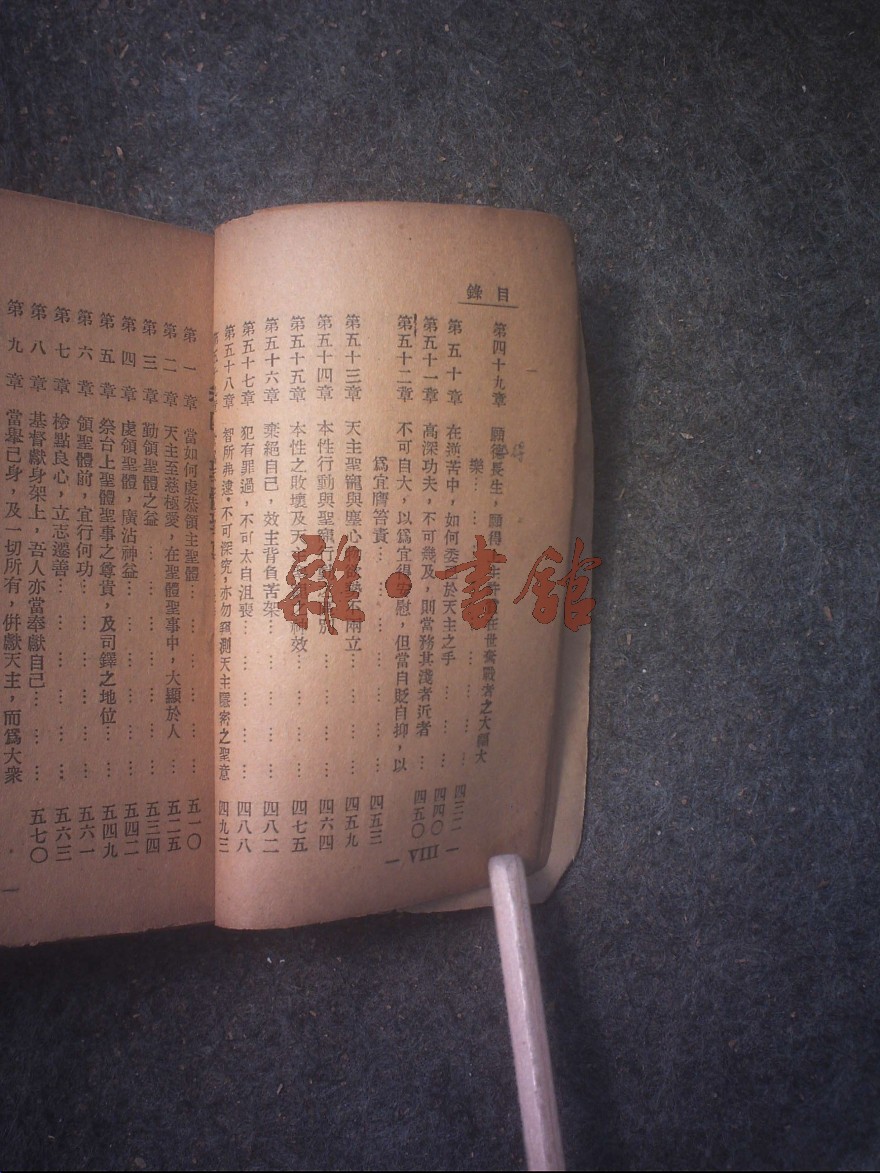 目錄
第四十九章 願得長生，願得 在世奮戰者之大願大
樂… … 四三二
第五十章 在 苦中，如何委 於天主之手… … … 四四〇
第五十一章 高深功夫，不可幾及，則當務其淺者近者… 四五〇
第五十二章 不可自大，以爲宜得安慰，但當自貶自抑，以
爲宜膺答責… … … … … … … … 四五三
第五十三章 天主聖寵與塵心 不兩立… … … … 四五九
第五十四章 本性行動與聖寵行動 別… … … … 四六四
第五十五章 本性之敗壞及天 神效… … … … 四七五
第五十六章 棄絕自己，效主背負苦架… … … … … 四八二
第五十七章 犯有罪過，不可太自沮喪… … … … … 四八八
第五十八章 智所弗逮，不可深究，亦勿 測天主隱密之聖意 四九三
— VIII —
第一章 當如何虔恭領主聖體… … … … … … 五一〇
第二章 天主至慈極愛，在聖體聖事中，大顯於人… … 五二五
第三章 勤領聖體之益… … … … … … … … 五三四
第四章 虔領聖體，廣沾神益… … … … … … 五四二
第五章 祭台上聖體聖事之尊貴，及司鐸之地位… … 五四九
第六章 領聖體前，宜行何功… … … … … … 五六一
第七章 檢點良心，立志遷善… … … … … … 五六三
第八章 基督獻身架上，吾人亦當奉獻自己… … … 五七〇
第九章 當舉己身，及一切所有，併獻天主，而爲大衆
雜·書舘